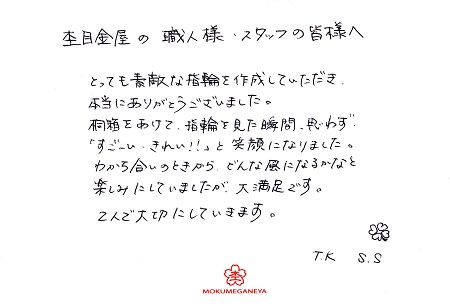 杢目金屋の職人様・スタッフの皆様へ
とっても素敵な指輪を作成していただき、
本当にありがとうございました。
桐箱をあけて、指輪を見た瞬間、思わず
「すごーい、きれい!!」と笑顔になりました。
わかち合いのときから、どんな風になるかなと
楽しみにしていましたが、大満足です。
2人で大切にしていきます。
T.K S.S
MOKUMEGANEYA